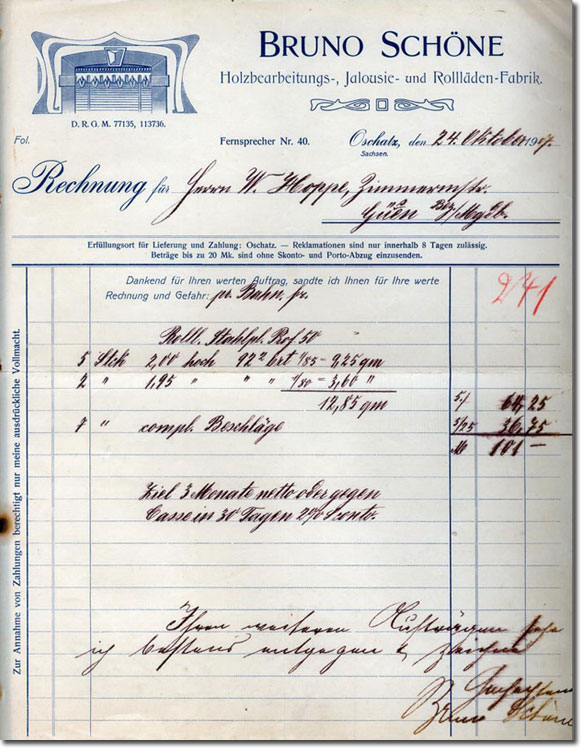 BRUNO SCHÖNE
Holzbearbeitungs-, Jalousie- und Rollläden-Fabrik.
D. R. G. M. 77135, 113736.
Fol.
Fernsprecher Nr. 40.
Oschatz, den 24. Oktober 1907.
Sachsen.
Rechnung für Herrn W. Hoppe, Zimmermstr.
Erfüllungsort für Lieferung und Zahlung: Oschatz. — Reklamationen sind nur innerhalb 8 Tagen zulässig.
Beträge bis zu 20 Mk. sind ohne Skonto- und Porto-Abzug einzusenden.
Zur Annahme von Zahlungen berechtigt nur meine ausdrückliche Vollmacht.
Dankend für Ihren werten Auftrag, sandte ich Ihnen für Ihre werte
Rechnung und Gefahr: pr. Bahn fr.
Roll. Stahlpl. 50
5 Stck 2,00 hoch 92² brt 1/85 = 9,25 qm
2 " 1,95 " " " 1/80 = 3,60 "
12,85 qm 5/ 64,25
7 " compl. Beschläge 5/25 36,75
M 101 —
Ziel 3 Monate netto oder gegen
Casse in 30 Tagen 2% Sconto.
Ihren weiteren Aufträgen sehe
ich bestens entgegen & zeichne
Bruno Schöne